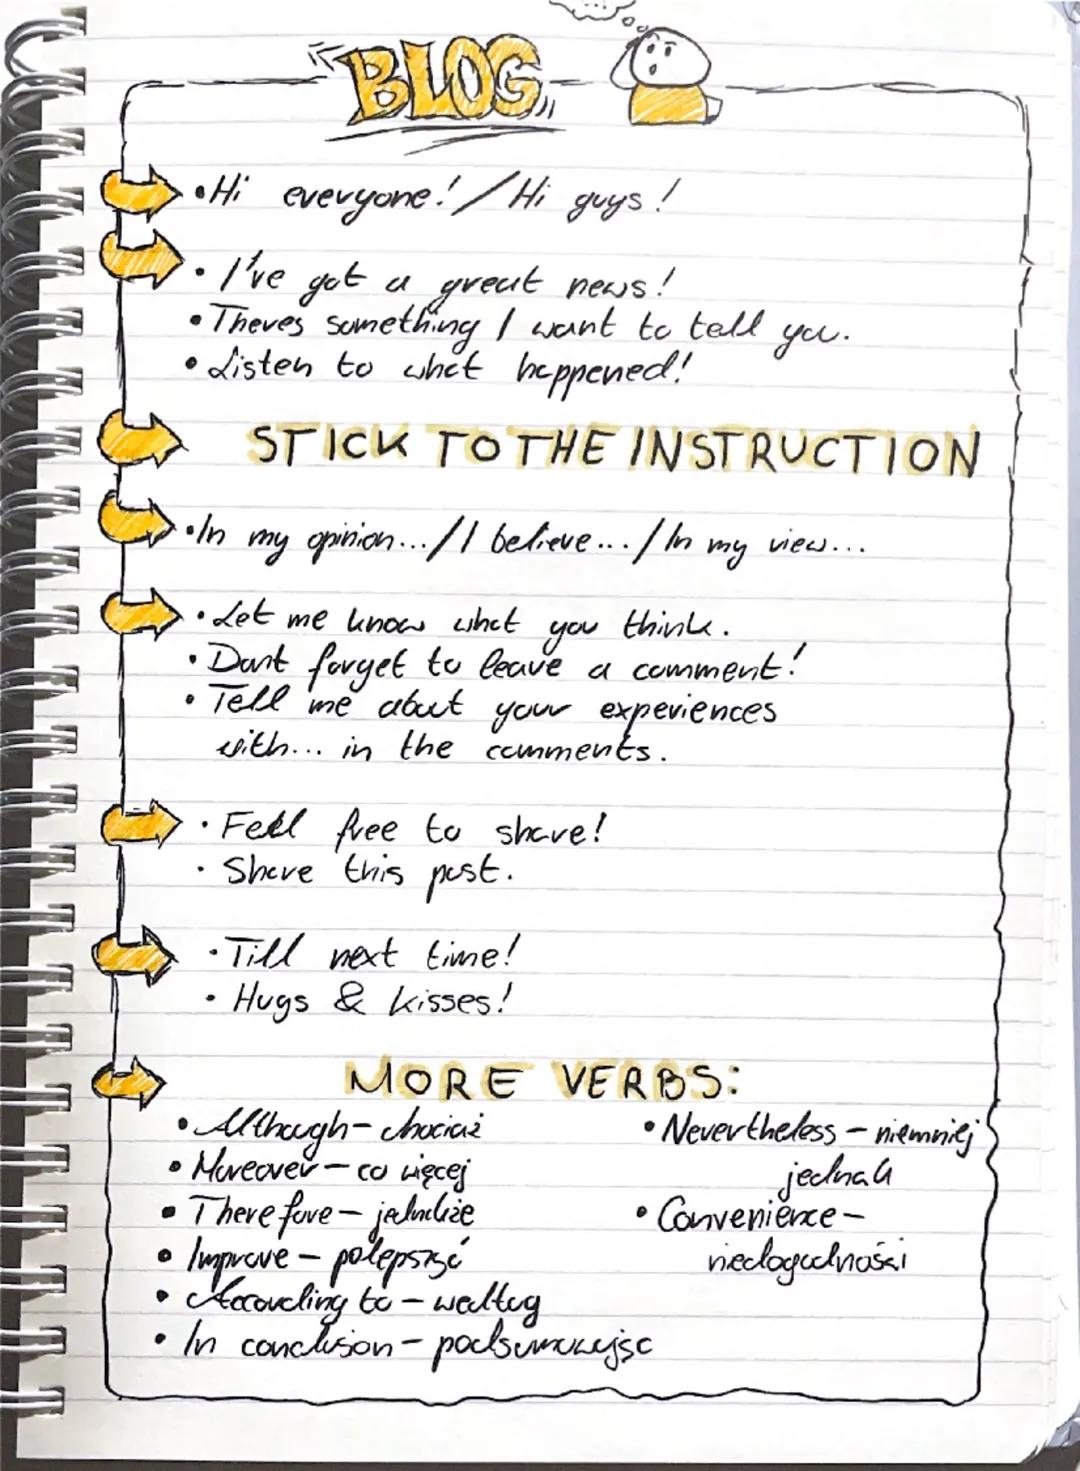 BLOG
• Hi everyone! / Hi guys!
• I've got a great news!
• Theres something I want to tell you.
• Listen to what happened!
STICK TO THE INSTRUCTION
• In my opinion... / I believe... / In my view...
• Let me know what you think.
• Dont forget to leave a comment!
• Tell me about your experiences
with... in the comments.
• Feel free to share!
• Share this post.
• Till next time!
• Hugs & kisses!
MORE VERBS:
• Although - chociaż
• Moreover - co więcej
• Therefore - jednakże
• Improve - polepszyć
• According to - według
• In conclusion - podsumowując
• Nevertheless - niemniej
jednak
• Convenience -
niedogodności